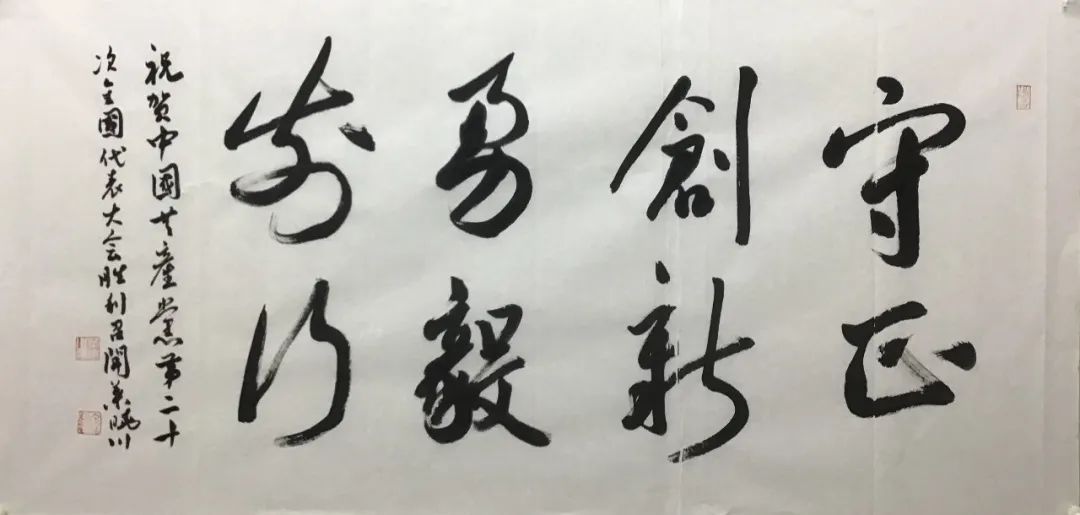 守正
創新
勇毅
前行
祝贺中國共産党第二十
次全國代表大会胜利召開